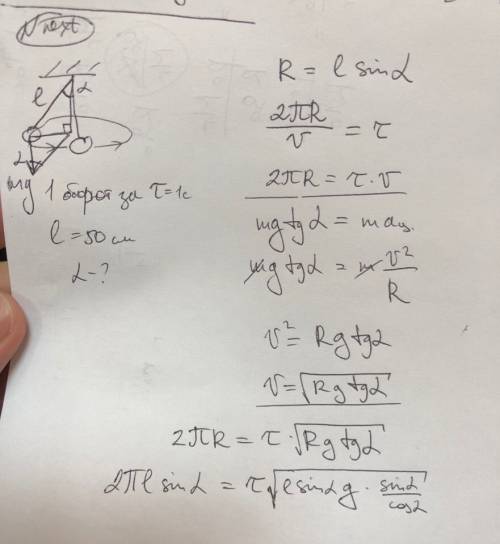 N next
l
α
α
mg
1 оборот за τ=1с
l = 50 см
α - ?
R = l sinα
2πR/v = τ
2πR = τ·v
mg tgα = m aц.
mg tgα = m v²/R
v² = Rg tgα
v = √(Rg tgα)
2πR = τ·√(Rg tgα)
2πl sinα = τ√(l sinα g · sinα/cosα)